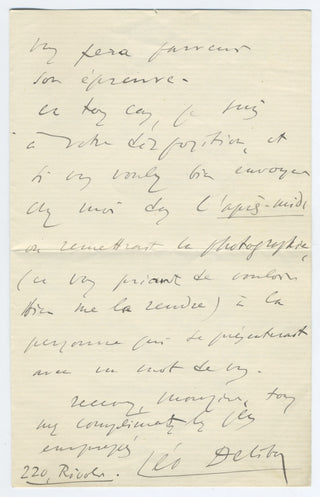 vous fera parvenir
son épreuve.
en tous cas, je suis
à votre disposition, et
si vous voulez bien envoyer
chez moi dans l'après-midi
on remettrait la photographie
(en vous priant de vouloir
bien me la rendre) à la
personne qui se présenterait
avec un mot de vous.
recevez, monsieur, tous
mes compliments les plus
empressés
220, Rivoli. Léo Delibes